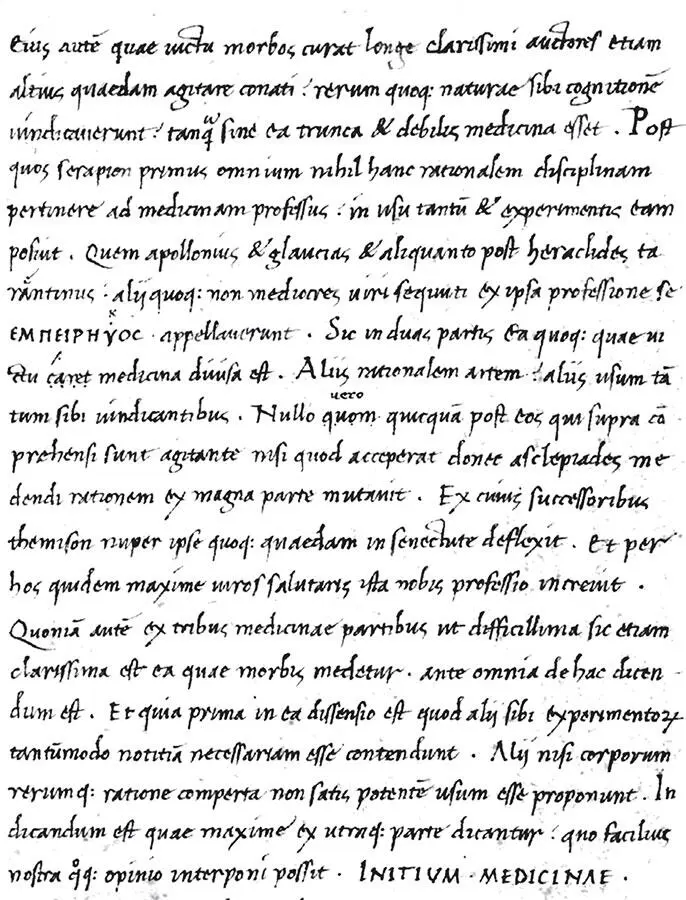 Eius autē quae uictu morbos curat longe clarissimi auctores etiam
altius quaedam agitare conati: rerum quoq: naturae sibi cognitionē
uindicauerunt: tanq̃ sine ea trunca & debilis medicina esset. Post
quos serapion primus omnium nihil hanc rationalem disciplinam
pertinere ad medicinam professus: in usu tantū & experimentis eam
posuit. Quem apollonius & glaucias & aliquanto post heraclides ta
rantinus: alii quoq: non mediocres uiri sequuti ex ipsa professione se
appellauerunt. Sic in duas partis ea quoq: quae ui
ctu caret medicina diuisa est. Aliis rationalem artem: aliis usum tā
tum sibi uindicantibus. Nullo uero quom quicquā post eos qui supra cō
prehensi sunt agitante nisi quod acceperat donec asclepiades me
dendi rationem ex magna parte mutauit. Ex cuius successoribus
themison nuper ipse quoq: quaedam in senectute deflexit. Et per
hos quidem maxime uiros salutaris ista nobis professio increuit.
Quoniā autē ex tribus medicinae partibus ut difficillima sic etiam
clarissima est ea quae morbis medetur. ante omnia de hac dicen
dum est. Et quia prima in ea dissensio est quod alii sibi experimentoꝝ
tantūmodo notitiā necessariam esse contendunt. Alii nisi corporum
rerumq: ratione comperta non satis potentē usum esse proponunt. In
dicandum est quae maxime ex utraq: parte dicantur: quo facilius
nostra qq̃: opinio interponi possit. INITIUM · MEDICINAE ·